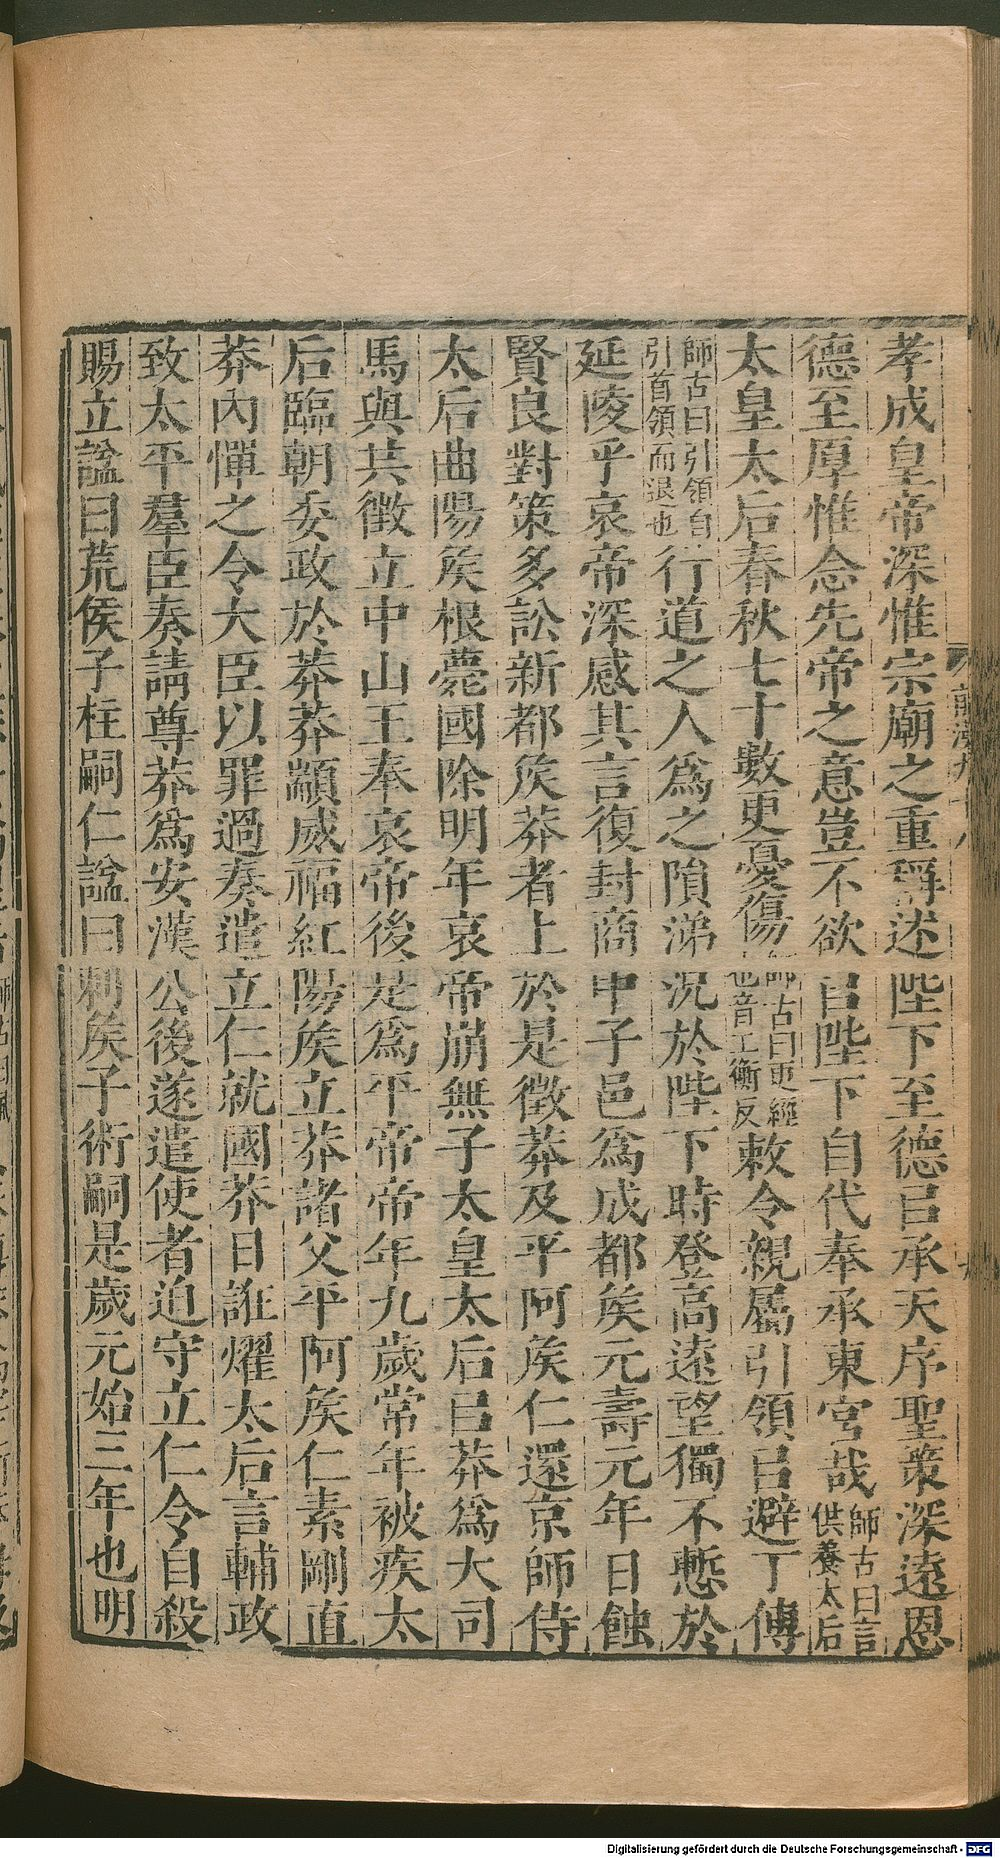 孝成皇帝深惟宗廟之重稱述陛下至德㠯承天序聖策深遠恩
德至厚惟念先帝之意豈不欲㠯陛下自代奉承東宮哉師古曰言供養太后
太皇太后春秋七十數更憂傷師古曰更經也音工衡反敕令親屬引領㠯避丁傅
師古曰引領自引首領而退也行道之人爲之隕涕況於陛下時登高遠望獨不慙於
延陵乎哀帝深感其言復封商中子邑爲成都矦元壽元年日蝕
賢良對策多訟新都矦莽者上於是徵莽及平阿矦仁還京師侍
太后曲陽矦根薨國除明年哀帝崩無子太皇太后㠯莽爲大司
馬與共徵立中山王奉哀帝後是爲平帝帝年九歲常年被疾太
后臨朝委政於莽莽顓威福紅陽矦立莽諸父平阿矦仁素剛直
莽內憚之令大臣以罪過奏遣立仁就國莽日誑燿太后言輔政
致太平羣臣奏請尊莽爲安漢公後遂遣使者迫守立仁令自殺
賜立謚曰荒侯子柱嗣仁謚曰剌矦子術嗣是歲元始三年也明
Digitalisierung gefördert durch die Deutsche Forschungsgemeinschaft - DFG